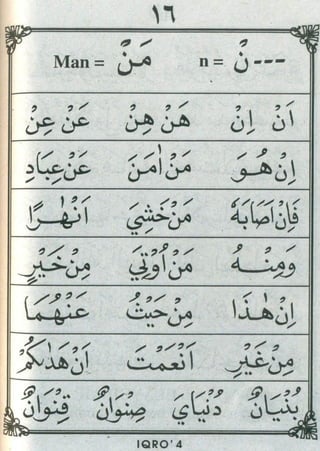 ١٦
Man = مَنْ n = ---نْ
اَنْ اِنْ هَنْ هِنْ عَنْ عِنْ
اِنْ هُوَ مَنْ اٰمَنَ عَنْ عِبَادِ
فَاِنْ اَصَابَهٗ مَنْ خَشِيَ اَنْهٰرًا
وَمِنْهُ مَنْ اُوْتِيَ مِنْ خَيْرٍ
اِنْ هٰذَا مِنْ حَيْثُ عَنْهُمَا
مِنْ غَيْرِ اَنْعَمْتَ اَنْ هَدٰىكُمْ
بُنْيَانٌ دُنْيَايَ صِنْوَانٌ قِنْوَانٌ
IQRO' 4